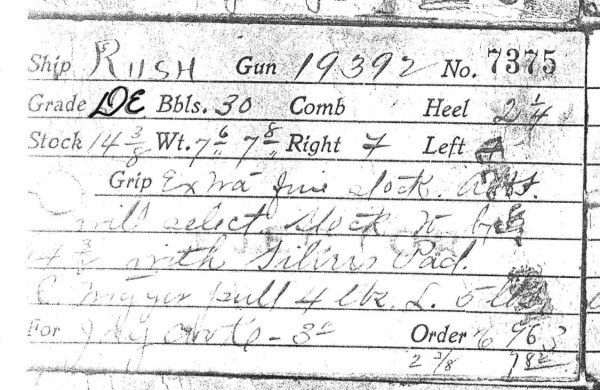 Ship RUSH Gun 19392 No. 7375
Grade DE Bbls. 30 Comb Heel 2 1/4
Stock 14 3/8 Wt. 7 6/" 7 8/" Right 7 Left
Grip Extra fine stock.
will select. Stock to be
14 3/8 with Silvers Pad.
Trigger pull 4 lbs. L. 5 lbs
For Order
2 3/8